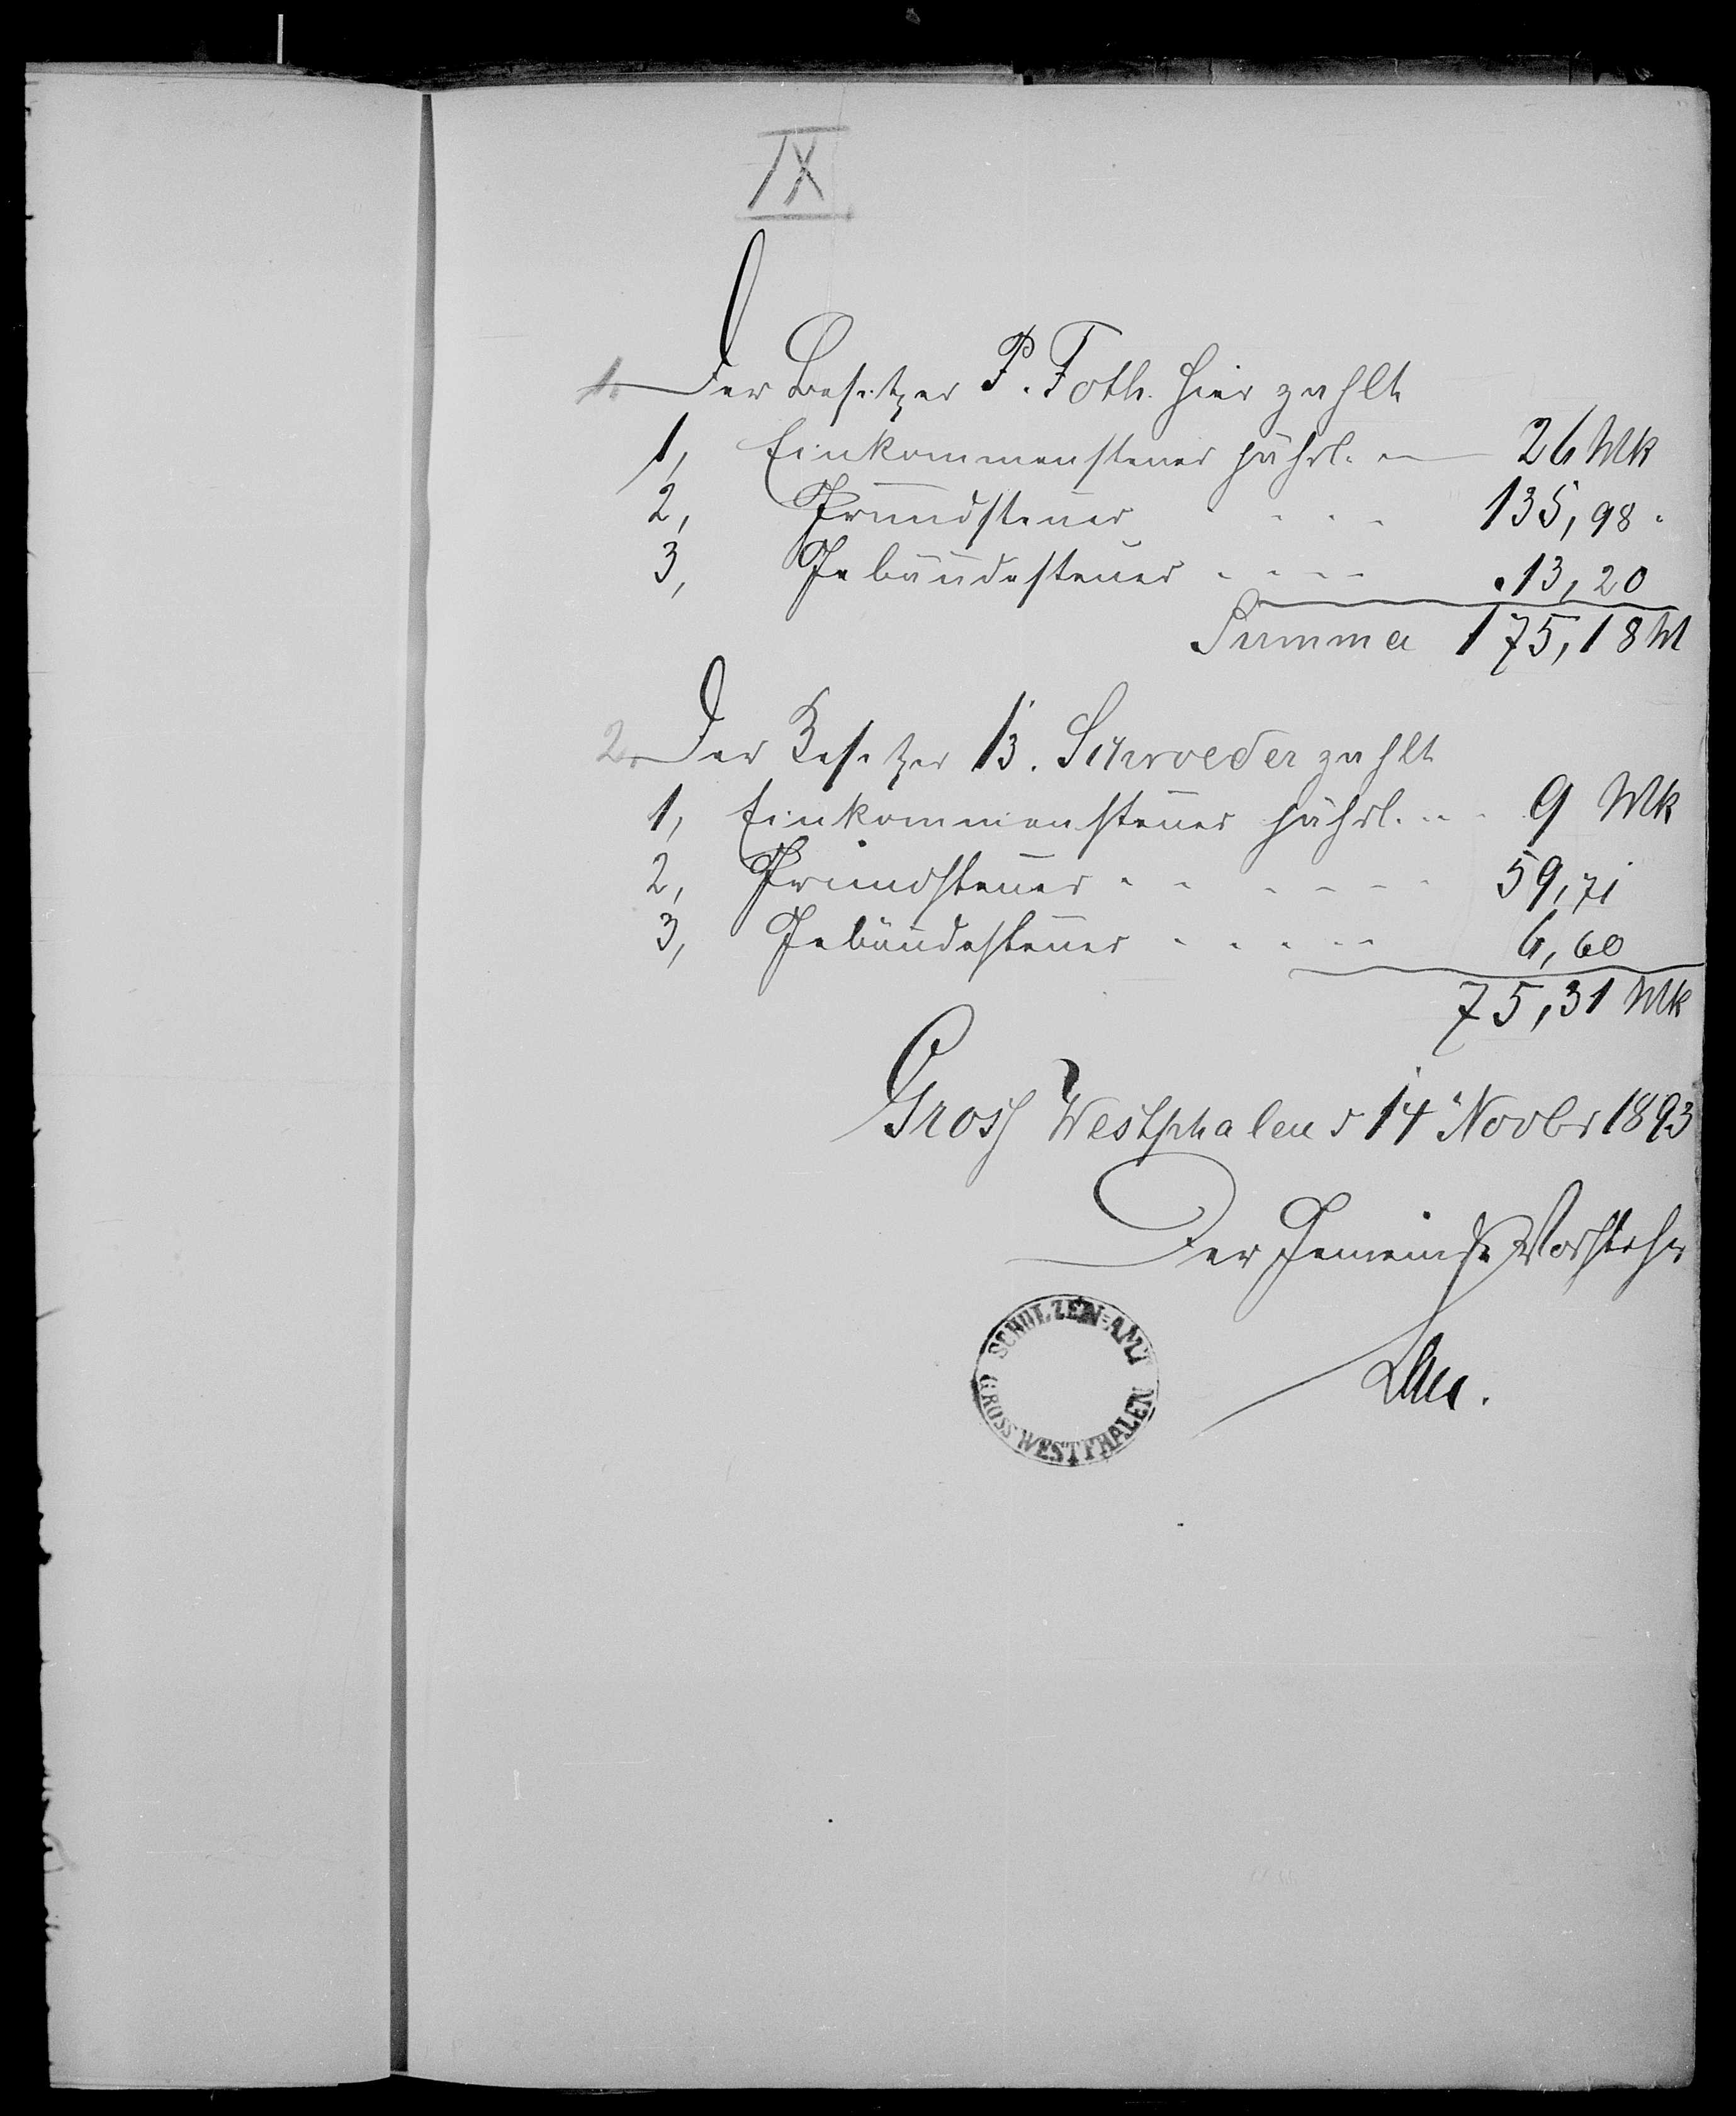 IX
1. Der Besitzer P. Foth. hier zahlt
1, Einkommensteuer jährl. 26 Mk
2, Grundsteuer 135,98.
3, Gebäudesteuer 13,20
Summa 175,18 M
2. Der Besitzer B. Schroeder zahlt
1, Einkommensteuer jährl. 9 Mk
2, Grundsteuer 59,71
3, Gebäudesteuer 6,60
75,31 Mk
Gross Westphalen d 14 Novbr 1893
Der Gemeinde Vorsteher
SCHULZEN=AMT
GROSS WESTPHALEN